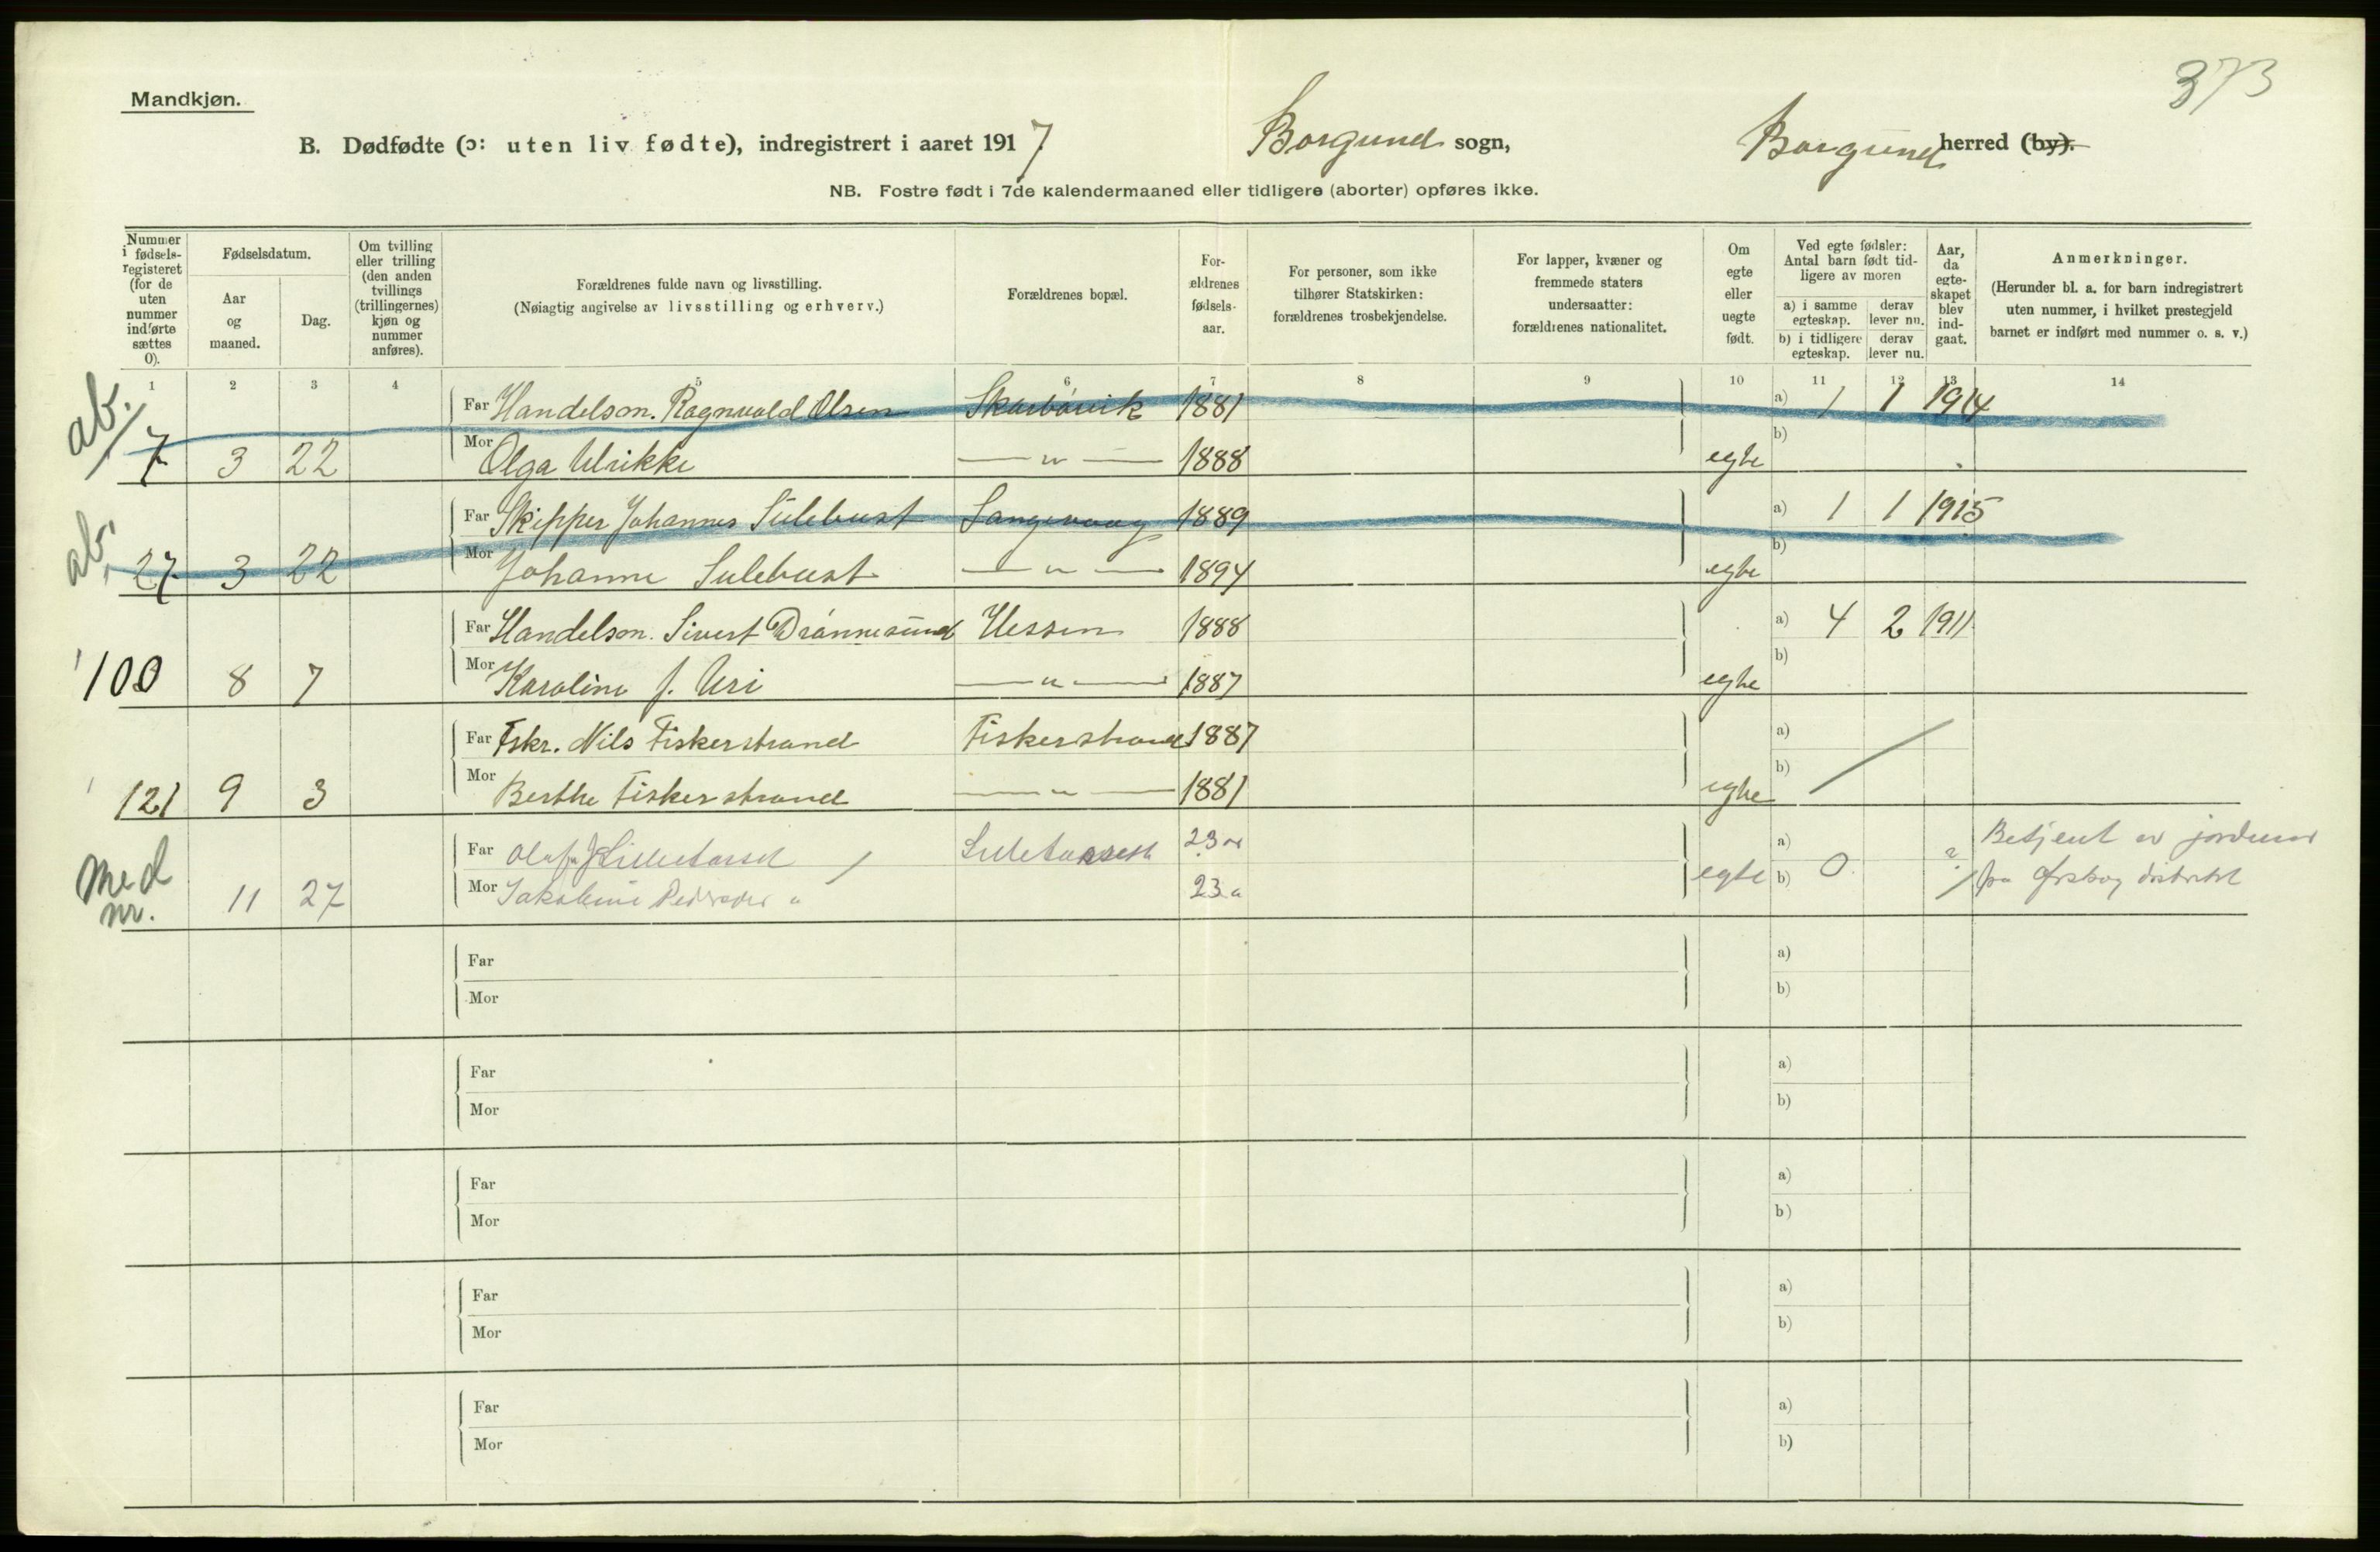 373
Mandkjøn.
B. Dødfødte (ɔ: uten liv fødte), indregistrert i aaret 1917 Borgund sogn, Borgund herred (by).
NB. Fostre født i 7de kalendermaaned eller tidligere (aborter) opføres ikke.
Nummer i fødsels-registeret (for de uten nummer indførte sættes 0).
Fødselsdatum.
Aar og maaned.
Dag.
Om tvilling eller trilling (den anden tvillings (trillingernes) kjøn og nummer anføres).
Forældrenes fulde navn og livsstilling.
(Nøiagtig angivelse av livsstilling og erhverv.)
Forældrenes bopæl.
For-ældrenes fødsels-aar.
For personer, som ikke tilhører Statskirken: forældrenes trosbekjendelse.
For lapper, kvæner og fremmede staters undersaatter: forældrenes nationalitet.
Om egte eller uegte født.
Ved egte fødsler: Antal barn født tid-ligere av moren
a) i samme egteskap.
derav lever nu.
b) i tidligere egteskap.
derav lever nu.
Aar, da egte-skapet blev ind-gaat.
Anmerkninger.
(Herunder bl. a. for barn indregistrert uten nummer, i hvilket prestegjeld barnet er indført med nummer o. s. v.)
1 2 3 4 5 6 7 8 9 10 11 12 13 14
ab.
Far Handelsm. Ragnvald Olsen Skarbövik 1881 a) 1 1 1914
7 3 22 Mor Olga Ulrikke — " — 1888 egte b)
ab.
Far Skipper Johannes Sulebust Langevaag 1889 a) 1 1 1915
27 3 22 Mor Johanne Sulebust — " — 1894 egte b)
Far Handelsm. Sivert Drönnesund Hessen 1888 a) 4 2 1911
100 8 7 Mor Karoline f. Uri — " — 1887 egte b)
Far Fskr. Nils Fiskerstrand Fiskerstrand 1887 a)
121 9 3 Mor Berthe Fiskerstrand — " — 1881 egte b)
Med nr.
Far Olaf 23 a) ? Betjent av
11 27 Mor 23 egte b) 0 fra Ørskog distriktet
Far a)
Mor b)
Far a)
Mor b)
Far a)
Mor b)
Far a)
Mor b)
Far a)
Mor b)